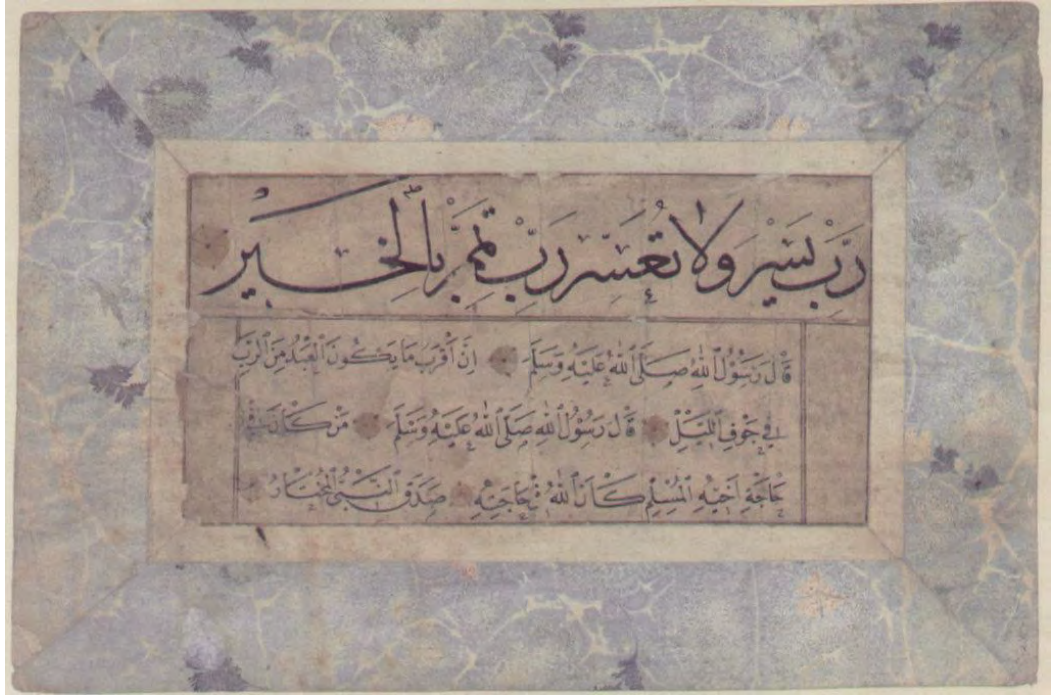 رَبِّ يَسِّرْ وَلَا تُعَسِّرْ رَبِّ تَمِّمْ بِالْخَيْرِ
قَالَ رَسُوْلُ ٱللهِ صَلَّى ٱللهُ عَلَيْهِ وَسَلَّمَ اِنَّ اَقْرَبَ مَا يَكُونُ ٱلْعَبْدُ مِنَ ٱلرَّبِّ
فِي جَوْفِ ٱللَّيْلِ قَالَ رَسُوْلُ ٱللهِ صَلَّى ٱللهُ عَلَيْهِ وَسَلَّمَ مَنْ كَانَ فِي
حَاجَةِ اَخِيْهِ الْمُسْلِمِ كَانَ ٱللهُ فِي حَاجَتِهِ صَدَقَ ٱلنَّبِيُّ الْمُخْتَارُ